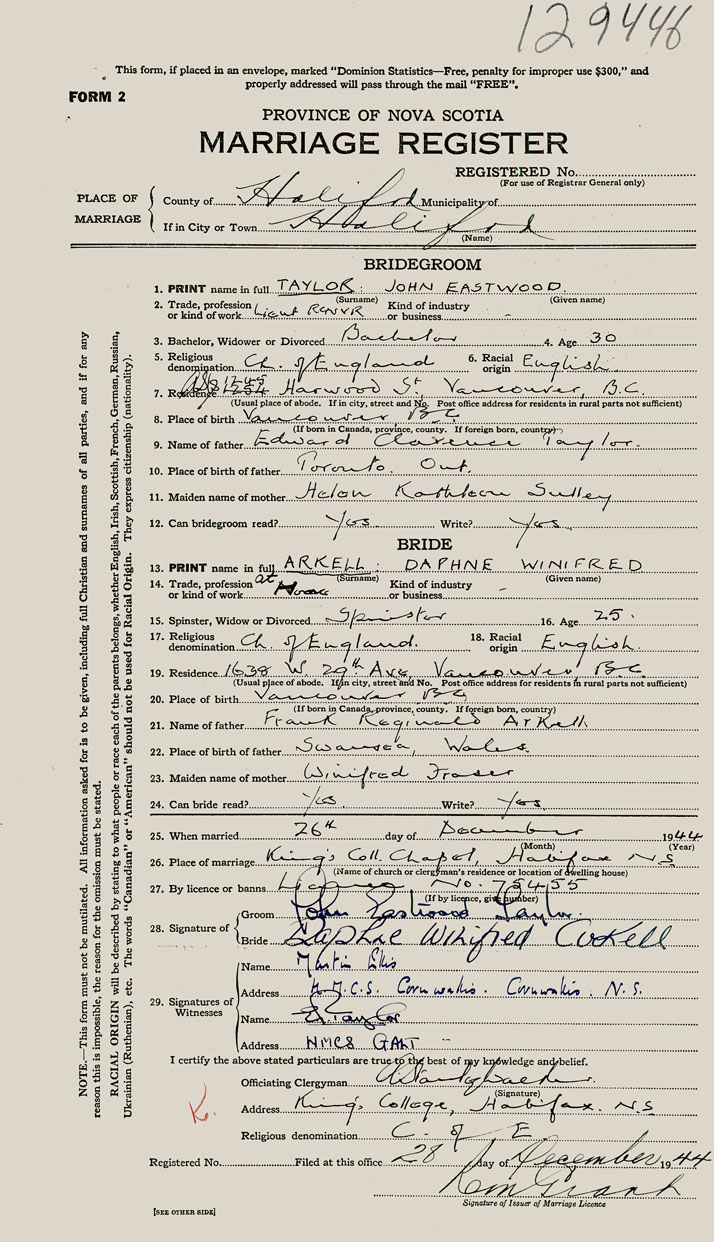 129446
This form, if placed in an envelope, marked "Dominion Statistics—Free, penalty for improper use $300," and
properly addressed will pass through the mail "FREE".
FORM 2
PROVINCE OF NOVA SCOTIA
MARRIAGE REGISTER
REGISTERED No.
(For use of Registrar General only)
PLACE OF MARRIAGE
County of Halifax Municipality of
If in City or Town Halifax
(Name)
BRIDEGROOM
1. PRINT name in full TAYLOR: JOHN EASTWOOD.
(Surname) (Given name)
2. Trade, profession or kind of work Lieut RCNVR Kind of industry or business -
3. Bachelor, Widower or Divorced Bachelor 4. Age 30
5. Religious denomination Ch. of England 6. Racial origin English.
7. Residence 1254 Harwood St. Vancouver, B.C.
(Usual place of abode. If in city, street and No. Post office address for residents in rural parts not sufficient)
8. Place of birth Vancouver BC
(If born in Canada, province, county. If foreign born, country)
9. Name of father Edward Clarence Taylor.
10. Place of birth of father Toronto. Ont.
11. Maiden name of mother Helen Kathleen Sulley
12. Can bridegroom read? Yes Write? Yes.
BRIDE
13. PRINT name in full ARKELL: DAPHNE WINIFRED
(Surname) (Given name)
14. Trade, profession or kind of work at Home Kind of industry or business -
15. Spinster, Widow or Divorced Spinster 16. Age 25.
17. Religious denomination Ch. of England. 18. Racial origin English.
19. Residence 1638 W. 29th Ave, Vancouver, B.C.
(Usual place of abode. If in city, street and No. Post office address for residents in rural parts not sufficient)
20. Place of birth Vancouver BC
(If born in Canada, province, county. If foreign born, country)
21. Name of father Frank Reginald Arkell
22. Place of birth of father Swansea, Wales.
23. Maiden name of mother Winifred Fraser
24. Can bride read? Yes. Write? Yes.
25. When married 26th day of December 1944
(Month) (Year)
26. Place of marriage King's Coll. Chapel, Halifax N S
(Name of church or clergyman's residence or location of dwelling house)
27. By licence or banns Licence No. 75455
(If by licence, give number)
28. Signature of
Groom John Eastwood Taylor.
Bride Daphne Winifred Arkell
29. Signatures of Witnesses
Name Martin Ellis
Address H.M.C.S. Cornwallis. Cornwallis. N.S.
Name Taylor
Address HMCS GALT
I certify the above stated particulars are true to the best of my knowledge and belief.
Officiating Clergyman
(Signature)
Address King's College, Halifax. N.S
Religious denomination C. of E.
Registered No. Filed at this office 28 day of December 1944
Signature of Issuer of Marriage Licence
[SEE OTHER SIDE]
K.
NOTE.—This form must not be mutilated. All information asked for is to be given, including full Christian and surnames of all parties, and if for any
reason this is impossible, the reason for the omission must be stated.
RACIAL ORIGIN will be described by stating to what people or race each of the parents belongs, whether English, Irish, Scottish, French, German, Russian,
Ukrainian (Ruthenian), etc. The words "Canadian" or "American" should not be used for Racial Origin. They express citizenship (nationality).